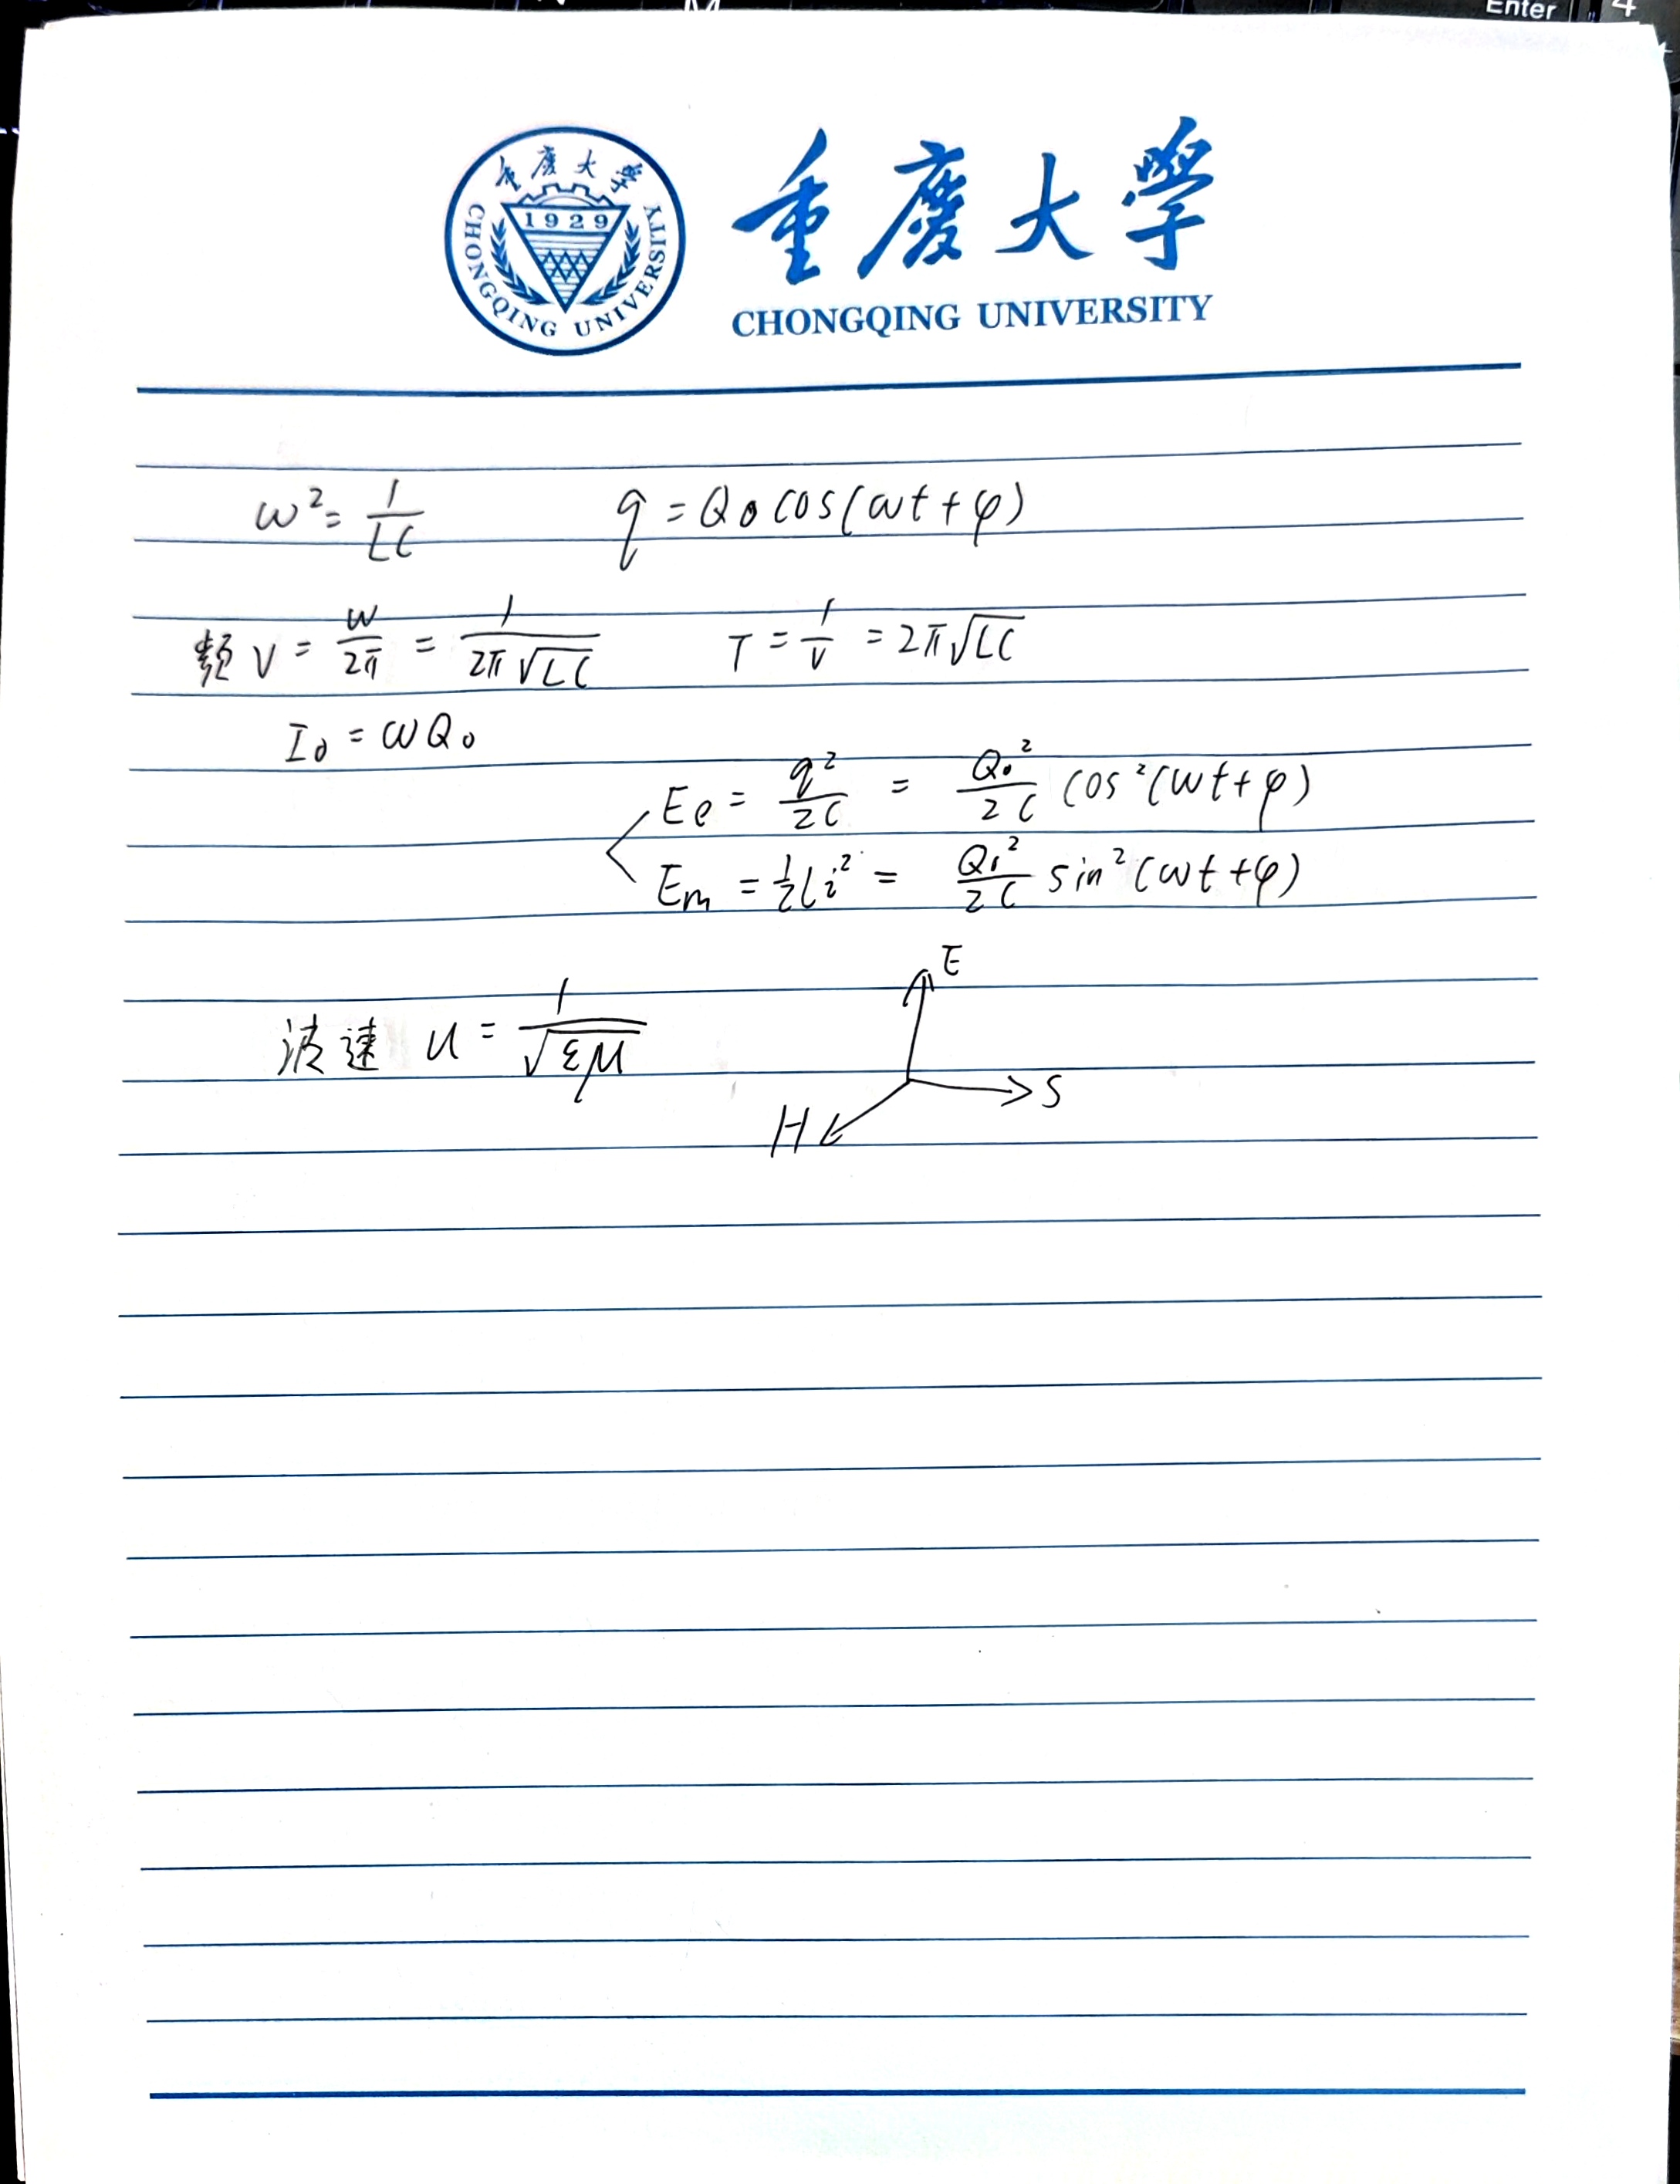 Enter 4
重慶大學
1929
CHONGQING UNIVERSITY
重慶大學
CHONGQING UNIVERSITY
ω² = 1/LC q = Q₀cos(ωt+φ)
频 ν = ω/2π = 1/2π√LC T = 1/ν = 2π√LC
I₀ = ωQ₀
Ee = q²/2C = Q₀²/2C cos²(ωt+φ)
Em = ½Li² = Q₀²/2C sin²(ωt+φ)
E
波速 u = 1/√εμ
S
H